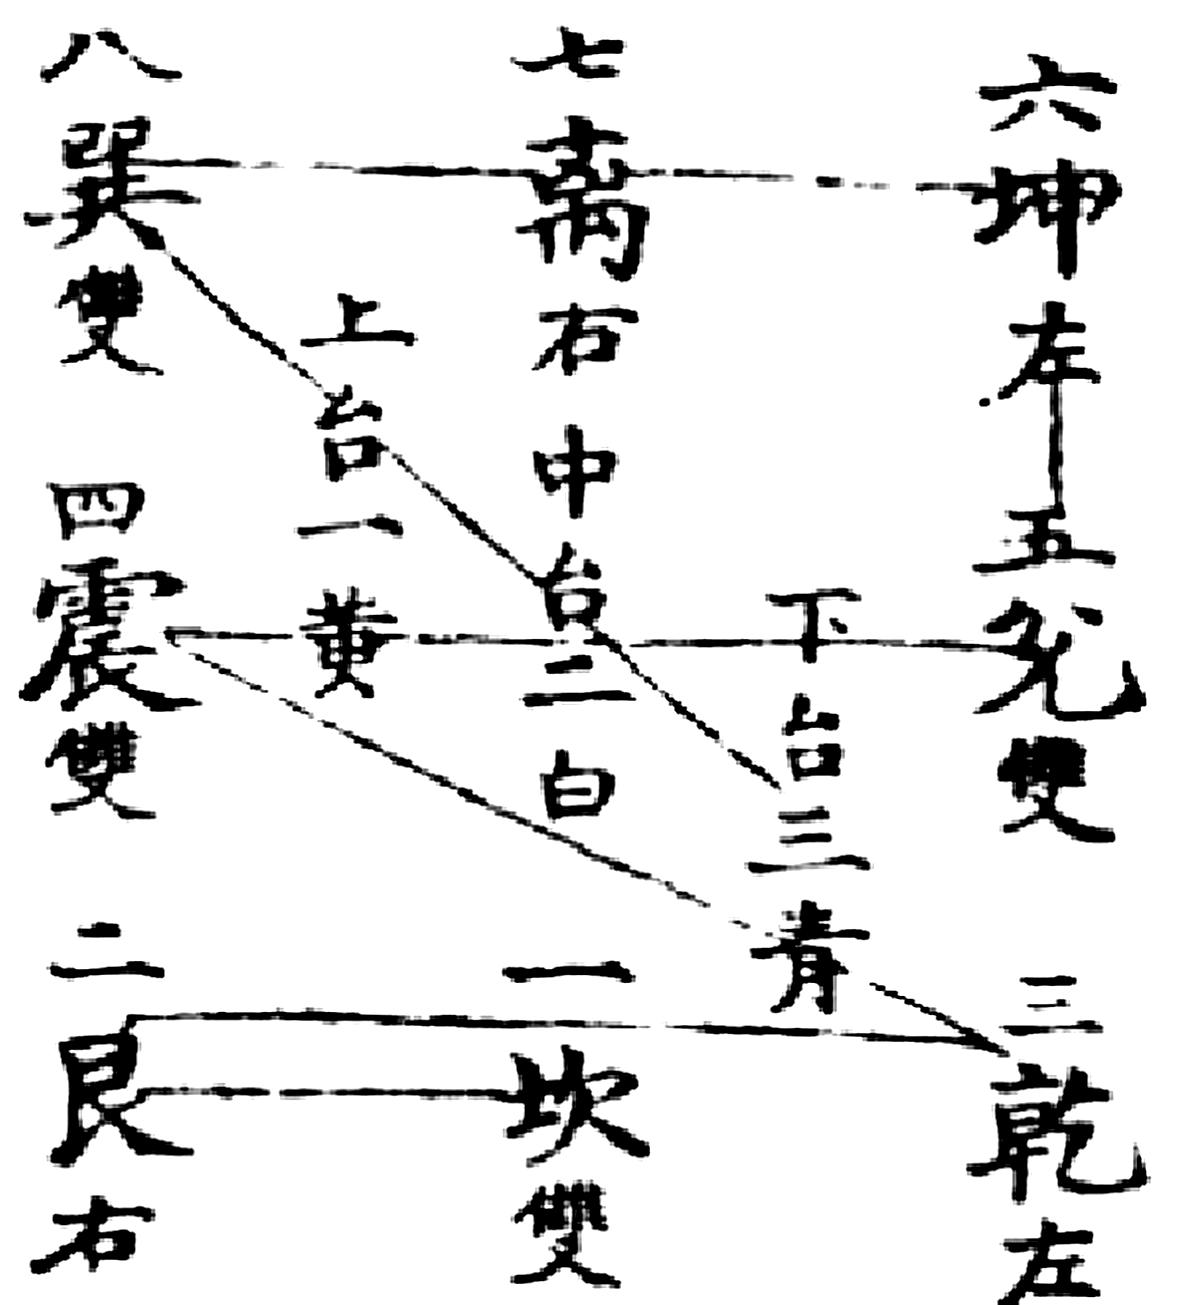 六坤左
五兌雙
三乾左
下台三青
七离右
中台二白
一坎雙
上台一黃
八巽雙
四震雙
二艮右